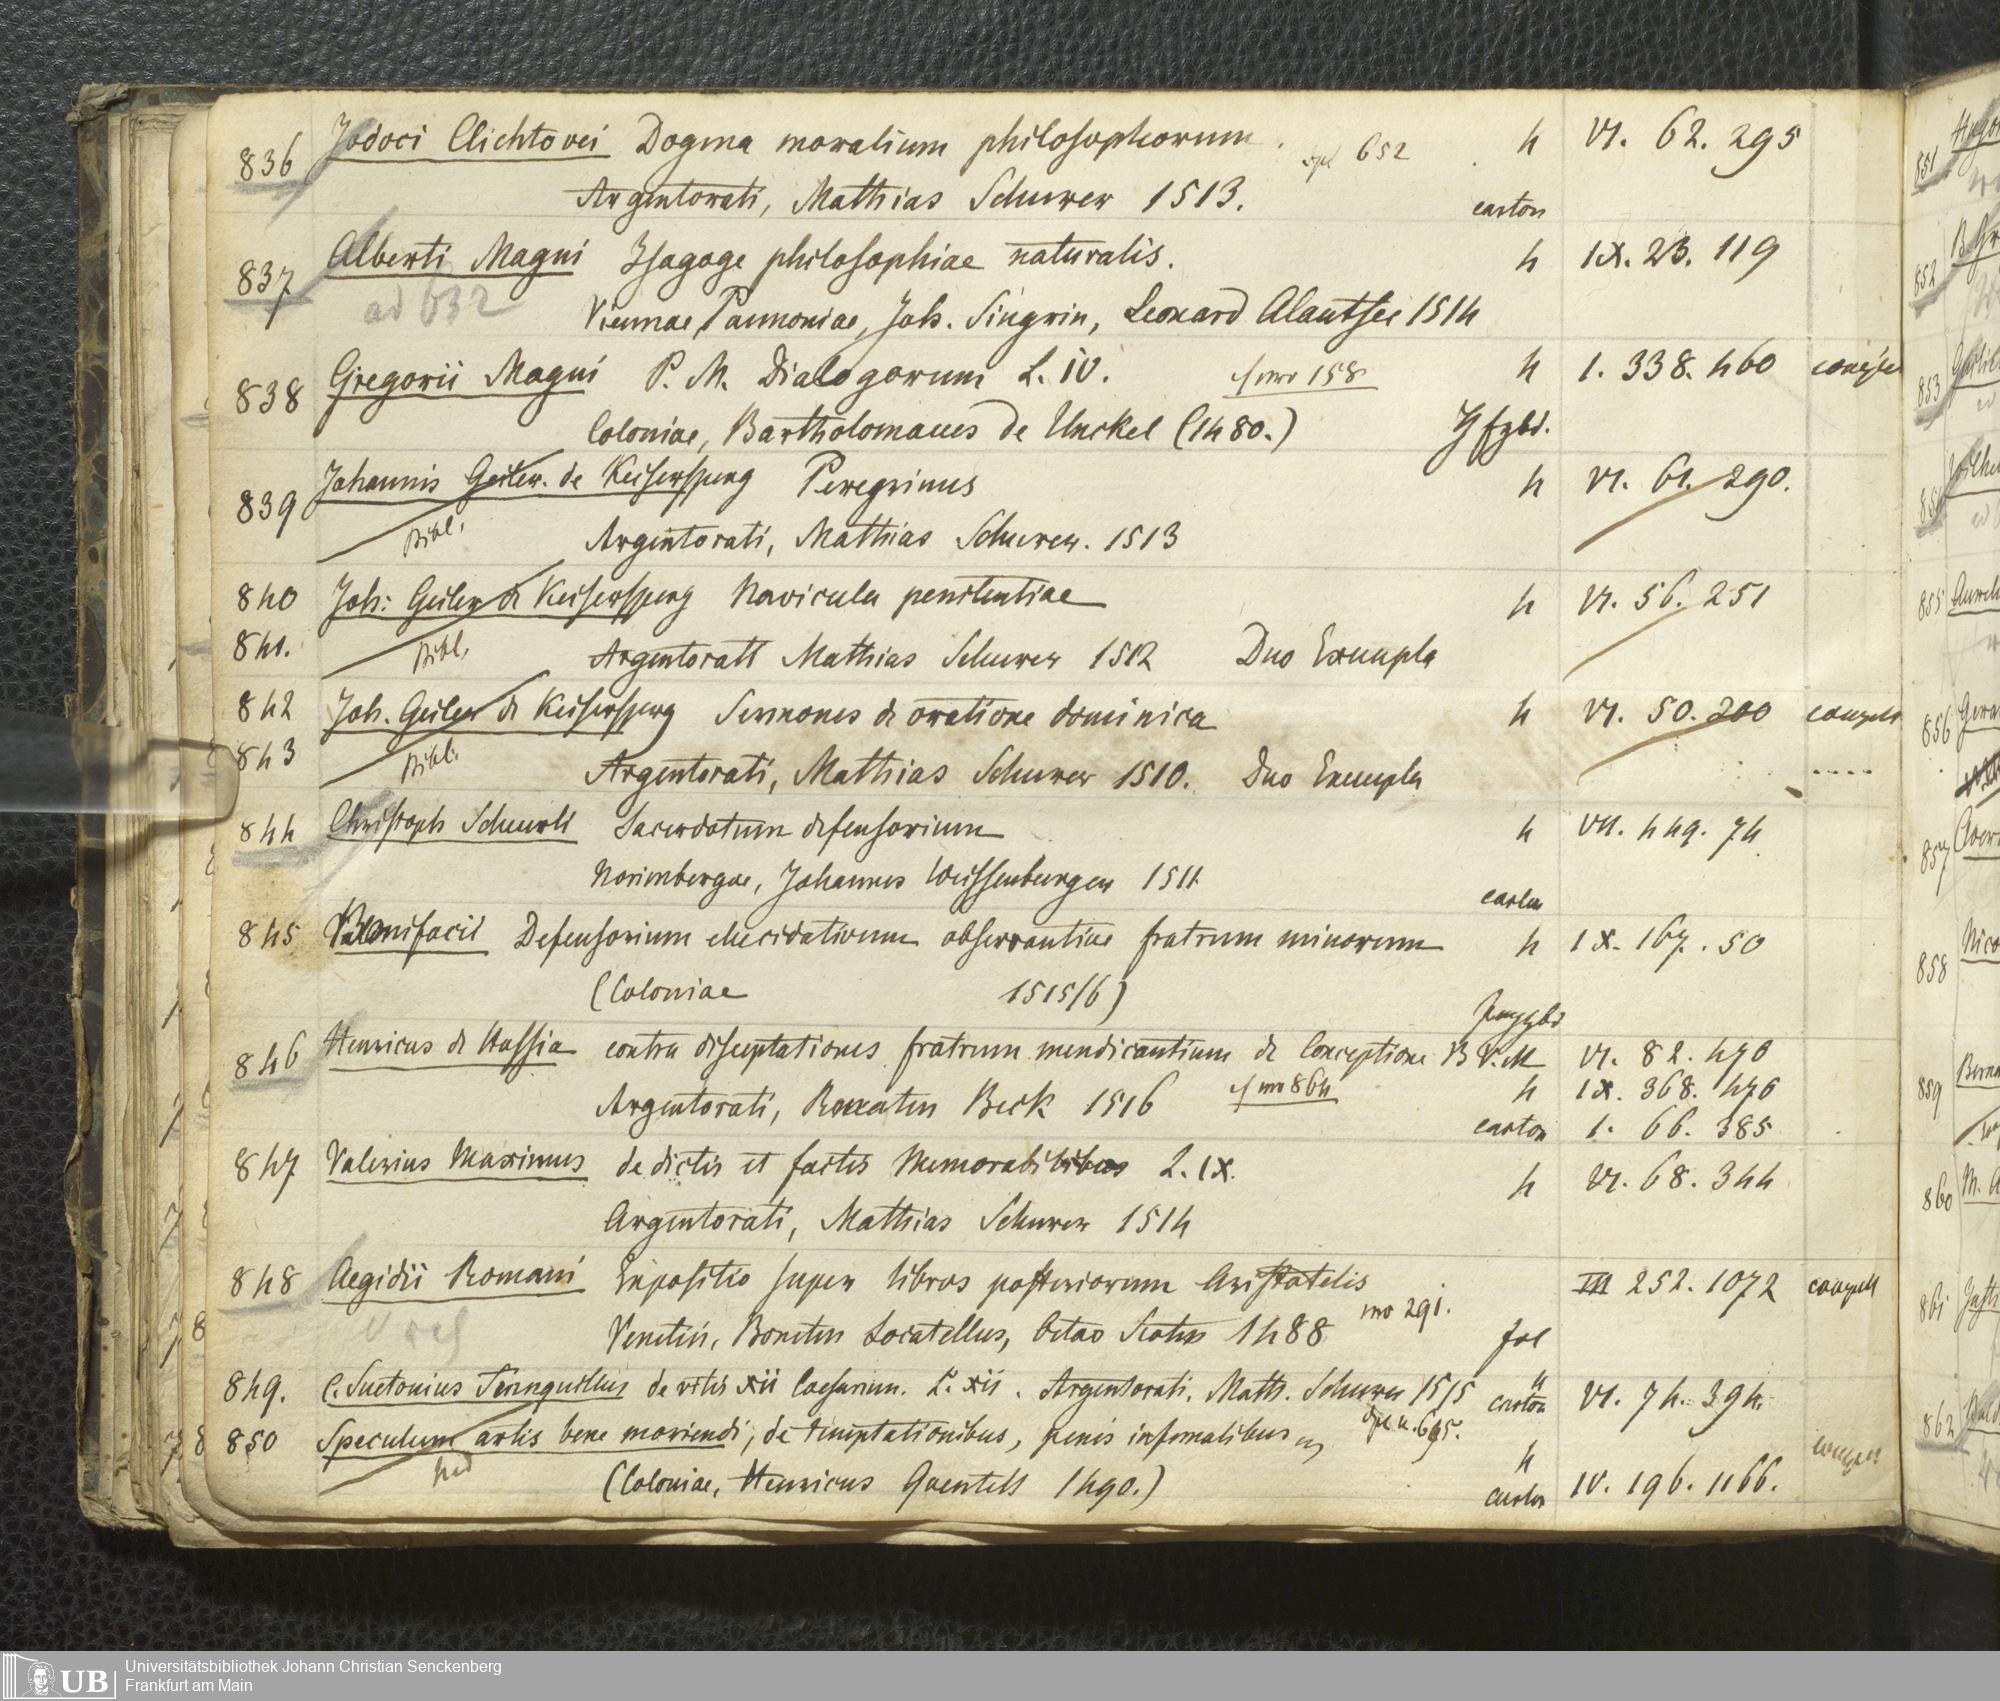 836 Jodoci Clichtovei Dogma moralium philosophorum. 652 h VI. 62. 295
Argentorati, Mathias Schurer 1513. carton
837 Alberti Magni Isagoge philosophiae naturalis. h IX. 23. 119
ad 632 Viennae Pannoniae, Joh. Singrin, Leonard Alantsee 1514
838 Gregorii Magni P. M. Dialogorum L. IV. cf nro 158 h 1. 338. 460
Coloniae, Bartholomaeus de Unckel (1480.)
839 Johannis Geiler. de Keisersperg Peregrinus h VI. 61. 290.
Bibl. Argentorati, Mathias Schurer. 1513
840 Joh: Geiler de Keisersperg Navicula penitentiae h VI. 56. 251
841. Bibl. Argentorati Mathias Schurer 1512 Duo Exempla
842 Joh. Geiler de Keisersperg Sermones de oratione dominica h VI. 50. 200
843 Bibl. Argentorati, Mathias Schurer 1510. Duo Exempla
844 Christoph Scheurli Sacerdotum defensorium h VII. 449. 74
Norimbergae, Johannes Weissenburger 1511 carton
845 Bonifacii Defensorium elucidativum observantiae fratrum minorum h IX. 167. 50
(Coloniae 1515/6)
846 Henricus de Hassia contra disceptationes fratrum mendicantium de Conceptione B V. M VI. 82. 470
Argentorati, Renatus Beck 1516 cf nro 864 h IX. 368. 476
carton 1. 66. 385
847 Valerius Maximus de dictis et factis Memorabilibus L. IX. h VI. 68. 344
Argentorati, Mathias Schurer 1514
848 Aegidii Romani Expositio super libros posteriorum Aristotelis III 252. 1072
Venetiis, Bonetus Locatellus, Octav Scotus 1488 nro 291. fol
849. C. Suetonius Tranquillus de vitis XII Caesarum. L. XII. Argentorati, Math. Schurer 1515 carton VI. 74. 394.
850 Speculum artis bene moriendi, de temptationibus, penis infernalibus h
(Coloniae, Henricus Quentell 1490.) carton IV. 196. 1166.
851
852
853
854
855
856
857
858
859
860
861
862
UB Universitätsbibliothek Johann Christian Senckenberg
Frankfurt am Main